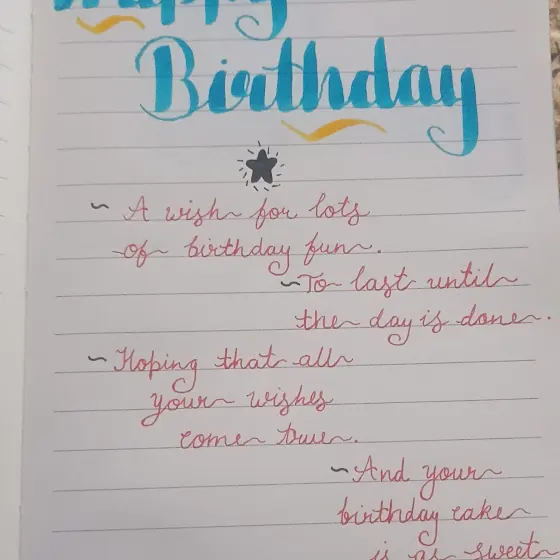 Happy
Birthday
~ A wish for lots
of birthday fun.
~ To last until
the day is done.
~ Hoping that all
your wishes
come true.
~ And your
birthday cake
is as sweet